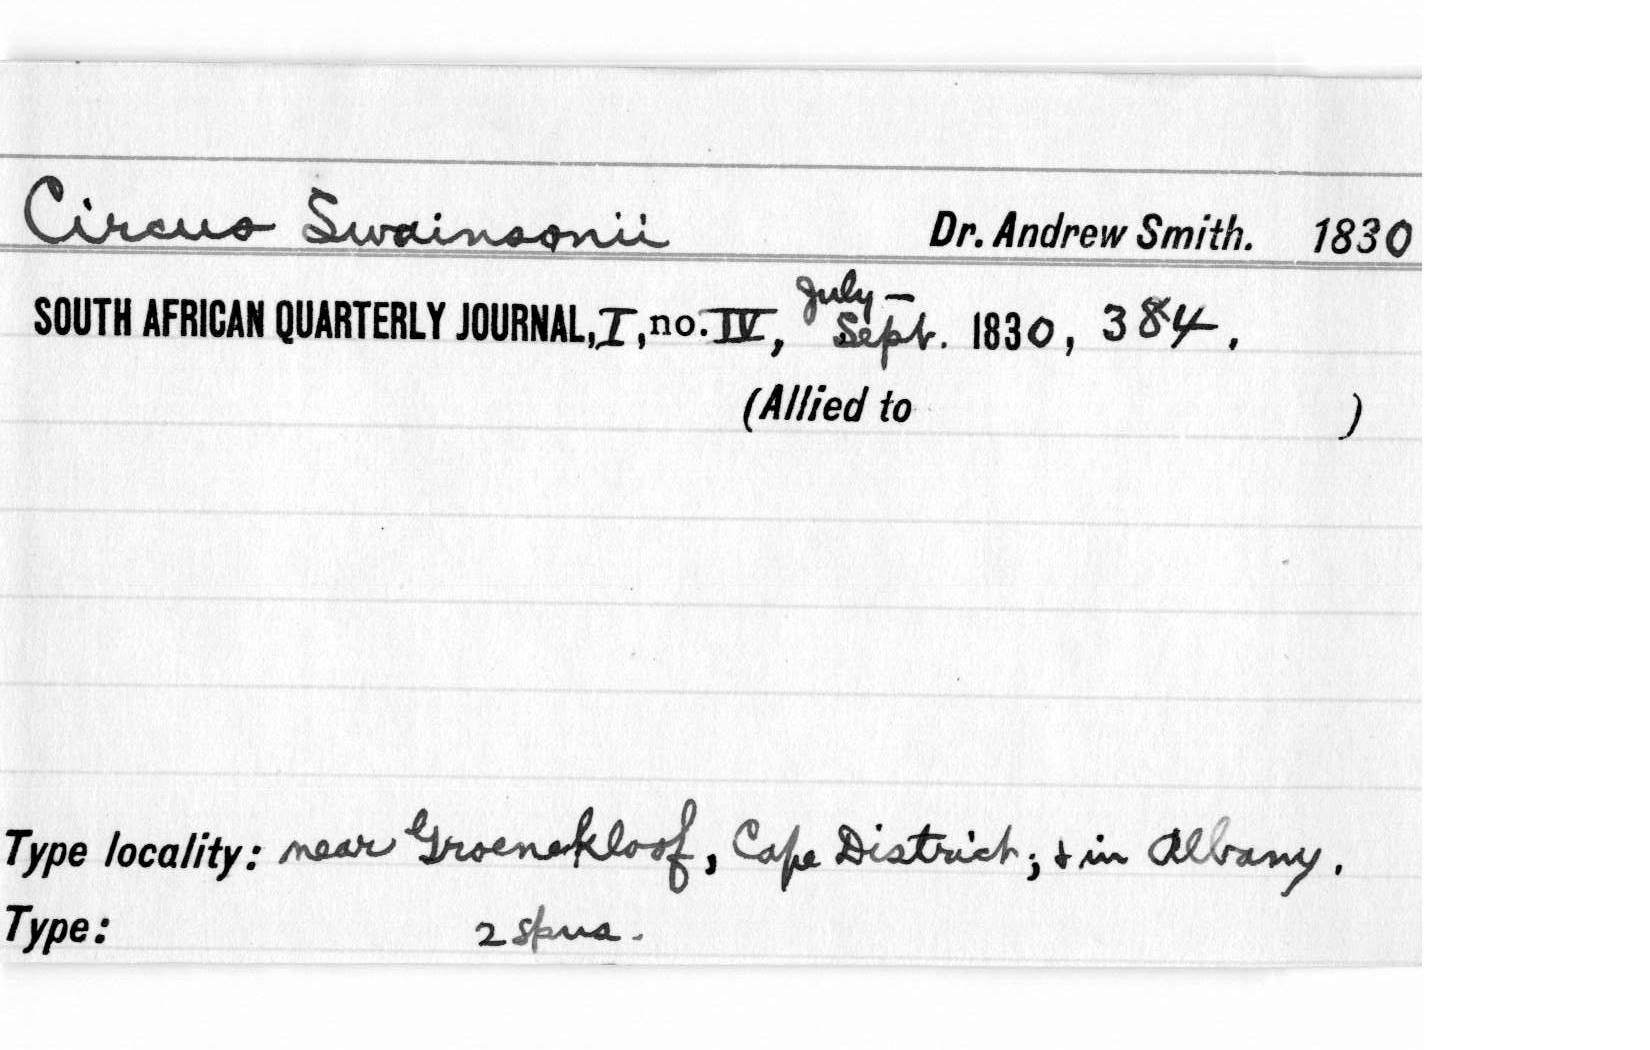 Circus Swainsonii Dr. Andrew Smith. 1830
SOUTH AFRICAN QUARTERLY JOURNAL, I, no. IV, July – Sept. 1830, 384.
(Allied to )
Type locality: near Groenekloof, Cape District; & in Albany.
Type: 2 spns.